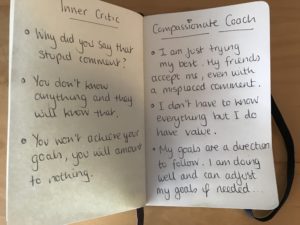 Inner Critic
• Why did you say that
stupid comment?
• You don't know
anything and they
will know that.
• You won't achieve your
goals, you will amount
to nothing.
Compassionate Coach
• I am just trying
my best. My friends
accept me, even with
a misplaced comment.
• I don't have to know
everything but I do
have value.
• My goals are a direction
to follow. I am doing
well and can adjust
my goals if needed...